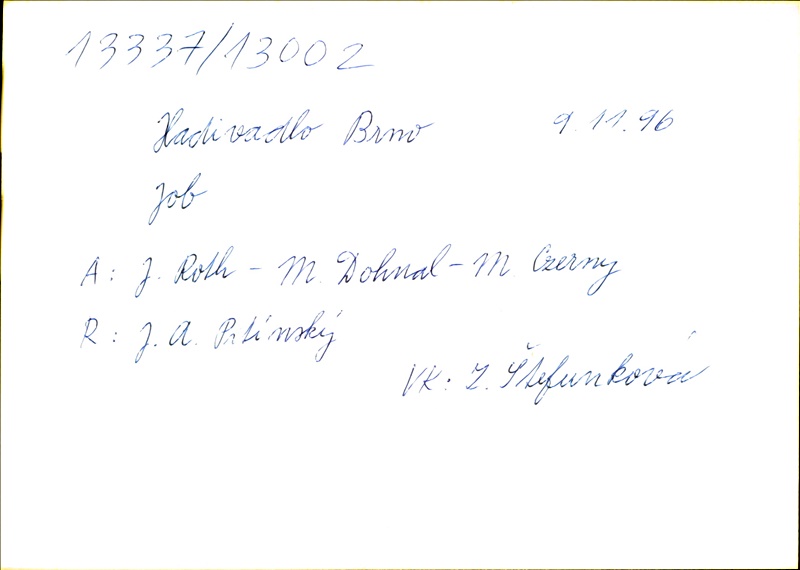 13337/13002
Hadivadlo Brno 9.11.96
Job
A: J. Roth - M. Dohnal - M Czerny
R: J. A. Pitínský
VK: Z. Štefunková